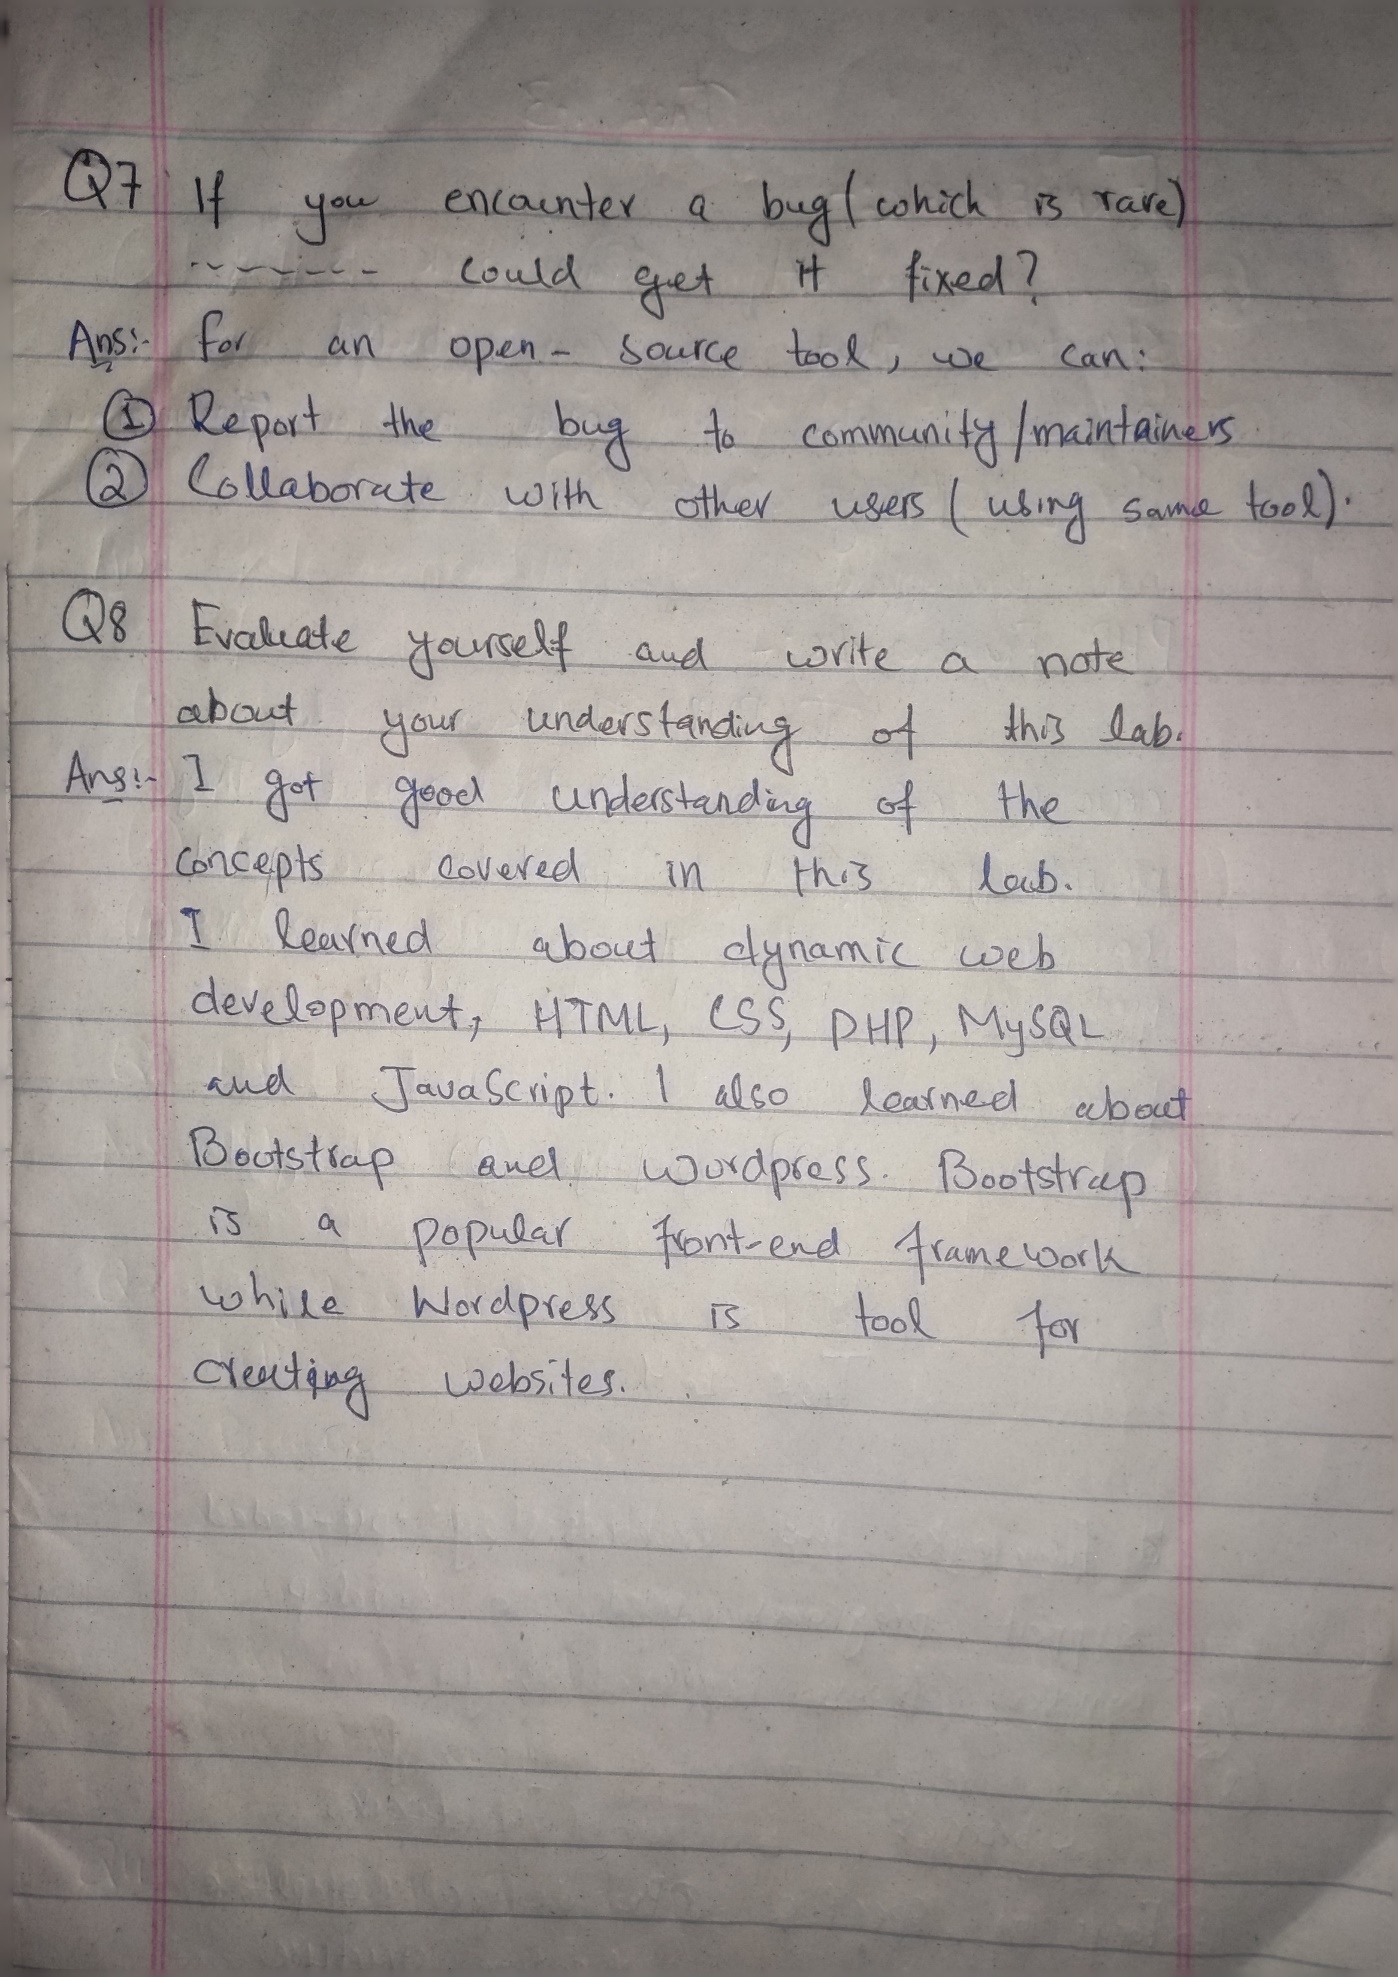 Q7 If you encounter a bug (which is rare)
------- could get it fixed?
Ans:- for an open-source tool, we can:
① Report the bug to community/maintainers
② Collaborate with other users (using same tool).
Q8 Evaluate yourself and write a note
about your understanding of this lab.
Ans:- I got good understanding of the
concepts covered in this lab.
I learned about dynamic web
development, HTML, CSS, PHP, MySQL
and JavaScript. I also learned about
Bootstrap and wordpress. Bootstrap
is a popular front-end framework
while Wordpress is tool for
creating websites.